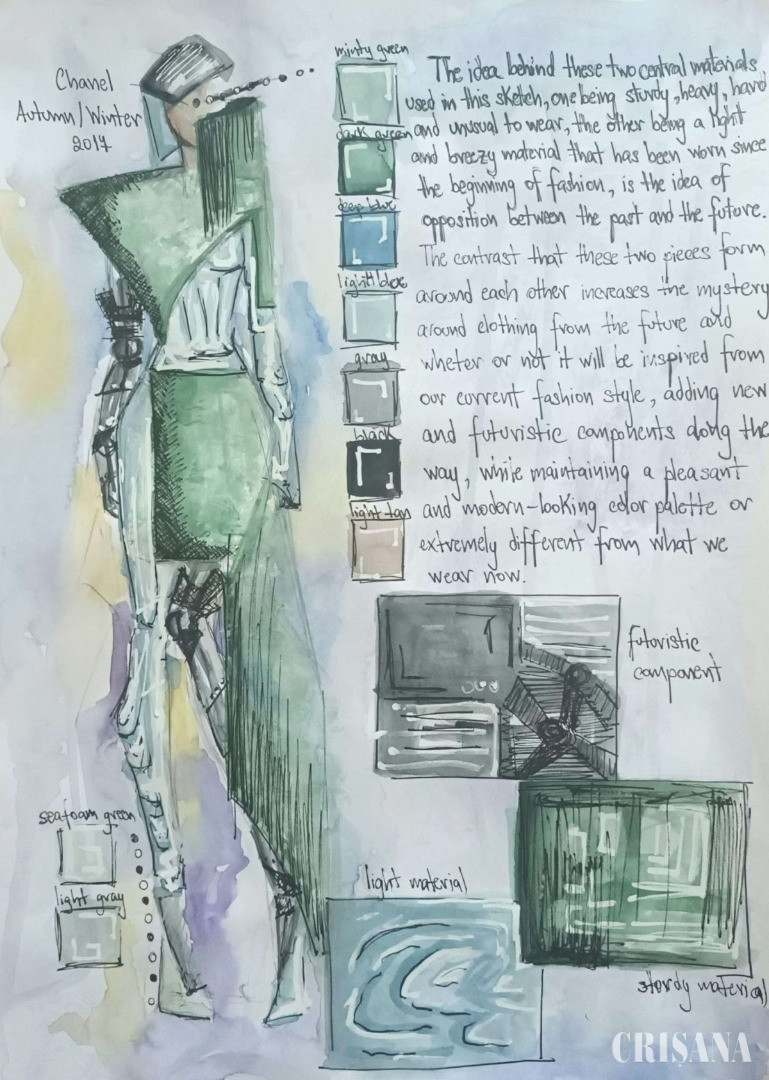 Chanel
Autumn/Winter
2017
minty green
dark green
deep blue
light blue
gray
black
light tan
The idea behind these two central materials
used in this sketch, one being sturdy, heavy, hard
and unusual to wear, the other being a light
and breezy material that has been worn since
the beginning of fashion, is the idea of
opposition between the past and the future.
The contrast that these two pieces form
around each other increases the mystery
around clothing from the future and
wheter or not it will be inspired from
our current fashion style, adding new
and futuristic components along the
way, while maintaining a pleasant
and modern-looking color palette or
extremely different from what we
wear now.
futuristic
component
seafoam green
light gray
light material
sturdy material
CRIȘANA